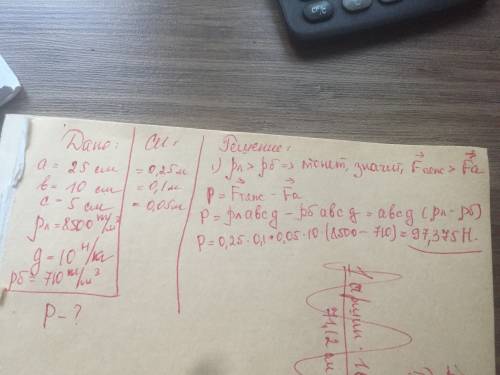 Дано:
a = 25 см
b = 10 см
c = 5 см
ρл = 8500 кг/м³
g = 10 Н/кг
ρб = 710 кг/м³
P - ?
СИ:
= 0,25м
= 0,1м
= 0,05м
Решение:
1) ρл > ρб => тонет, значит, Fтяж > Fа
P = Fтяж - Fа
P = ρл abc g - ρб abc g = abc g (ρл - ρб)
P = 0,25 · 0,1 · 0,05 · 10 (8500 - 710) = 97,375 Н.
1 аршин · 16
71,12 см